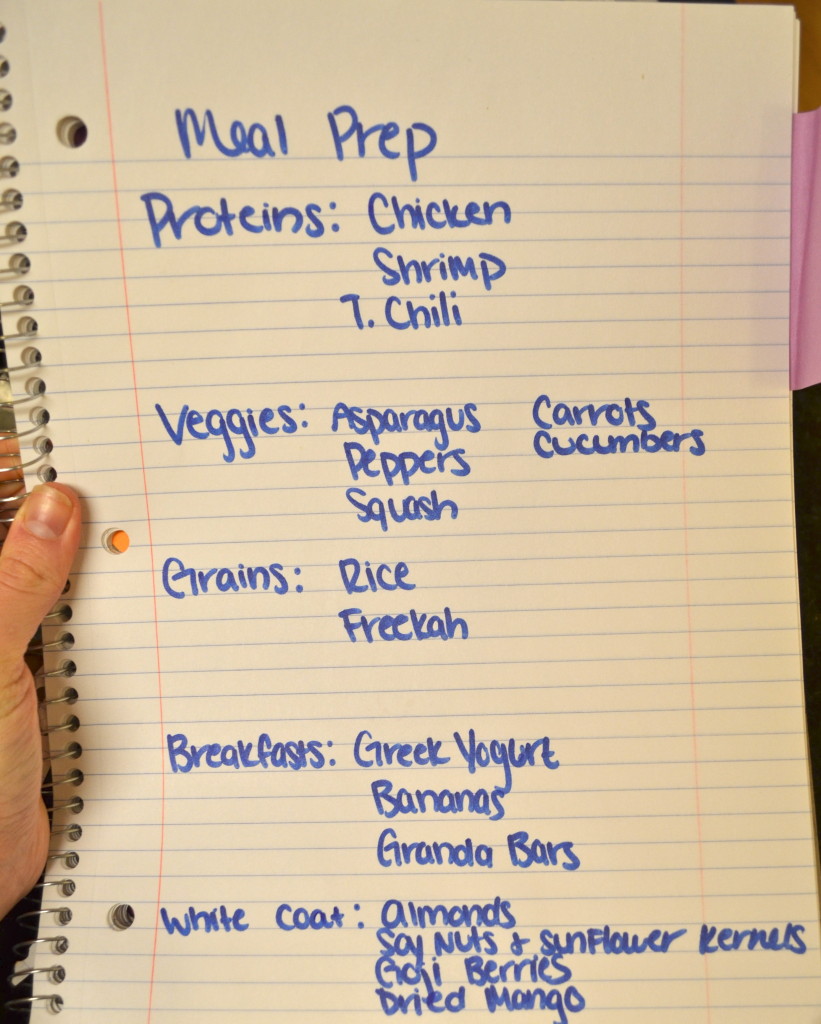 Meal Prep
Proteins: Chicken
Shrimp
T. Chili
Veggies: Asparagus Carrots
Peppers Cucumbers
Squash
Grains: Rice
Freekah
Breakfasts: Greek Yogurt
Bananas
Granola Bars
White Coat: Almonds
Soy Nuts + Sunflower Kernels
Goji Berries
Dried Mango